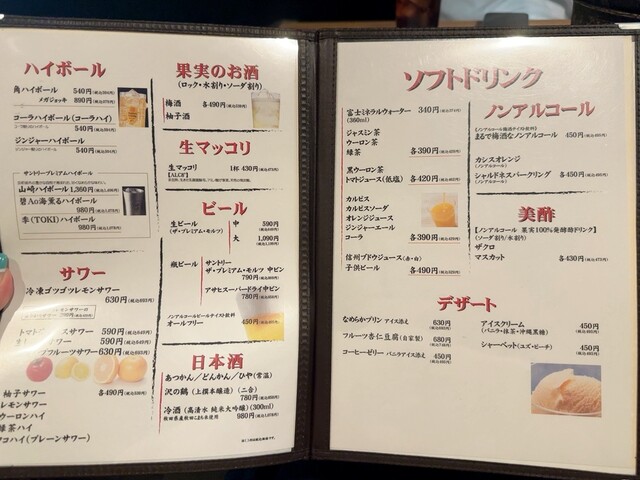 ハイボール
角ハイボール 540円
メガジョッキ 890円
コーラハイボール(コーラハイ)
540円
ジンジャーハイボール
540円
サントリープレミアムハイボール
山崎ハイボール 1,360円
碧Ao海薫るハイボール
980円
季(TOKI)ハイボール
980円
サワー
冷凍ゴツゴツレモンサワー
630円
サワー 590円
590円
フルーツサワー 630円
柚子サワー 各490円
レモンサワー
ウーロンハイ
緑茶ハイ
コハイ(プレーンサワー)
果実のお酒
(ロック・水割り・ソーダ割り)
梅酒 各490円
柚子酒
生マッコリ
生マッコリ 1杯 430円
ビール
生ビール 中 590円
(ザ・プレミアム・モルツ)
大 1,090円
瓶ビール サントリー
ザ・プレミアム・モルツ 中ビン
790円
アサヒスーパードライ中ビン
780円
ノンアルコールビールテイスト飲料
オールフリー 450円
日本酒
あつかん/どんかん/ひや(常温)
沢の鶴(上撰本醸造)(二合)
780円
冷酒(高清水 純米大吟醸)(300ml)
980円
ソフトドリンク
富士ミネラルウォーター 340円
(360ml)
ジャスミン茶
ウーロン茶
緑茶 各390円
黒ウーロン茶
トマトジュース(低塩) 各420円
カルピス
カルピスソーダ
オレンジジュース
ジンジャーエール
コーラ 各390円
信州ブドウジュース(赤・白)
子供ビール 各490円
ノンアルコール
(ノンアルコール梅酒テイスト飲料)
まるで梅酒なノンアルコール 450円
カシスオレンジ
(ノンアルコール)
シャルドネスパークリング 各450円
(ノンアルコール)
美酢
【ノンアルコール 果実100%発酵酢ドリンク】
(ソーダ割り/水割り)
ザクロ
マスカット 各430円
デザート
なめらかプリン アイス添え 630円
フルーツ杏仁豆腐(自家製) 680円
コーヒーゼリー バニラアイス添え 450円
アイスクリーム 450円
(バニラ・抹茶・沖縄黒糖)
シャーベット(ユズ・ピーチ) 450円